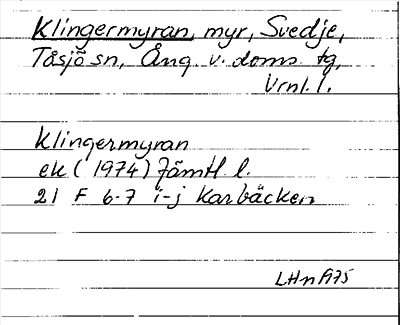 Klingermyran, myr, Svedje,
Tåsjö sn, Ång. v. doms tg,
Vrnl. l.
Klingermyran
ek (1974) Jämtl l.
21 F 6-7 i-j Karbäcken
LHn A75